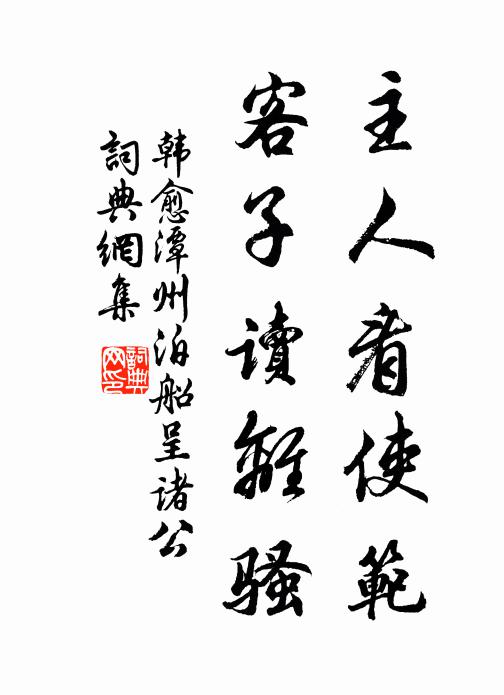 主人看使範
客子讀離騷
韓愈潭州泊船呈諸公
詞典網集
詞典网印